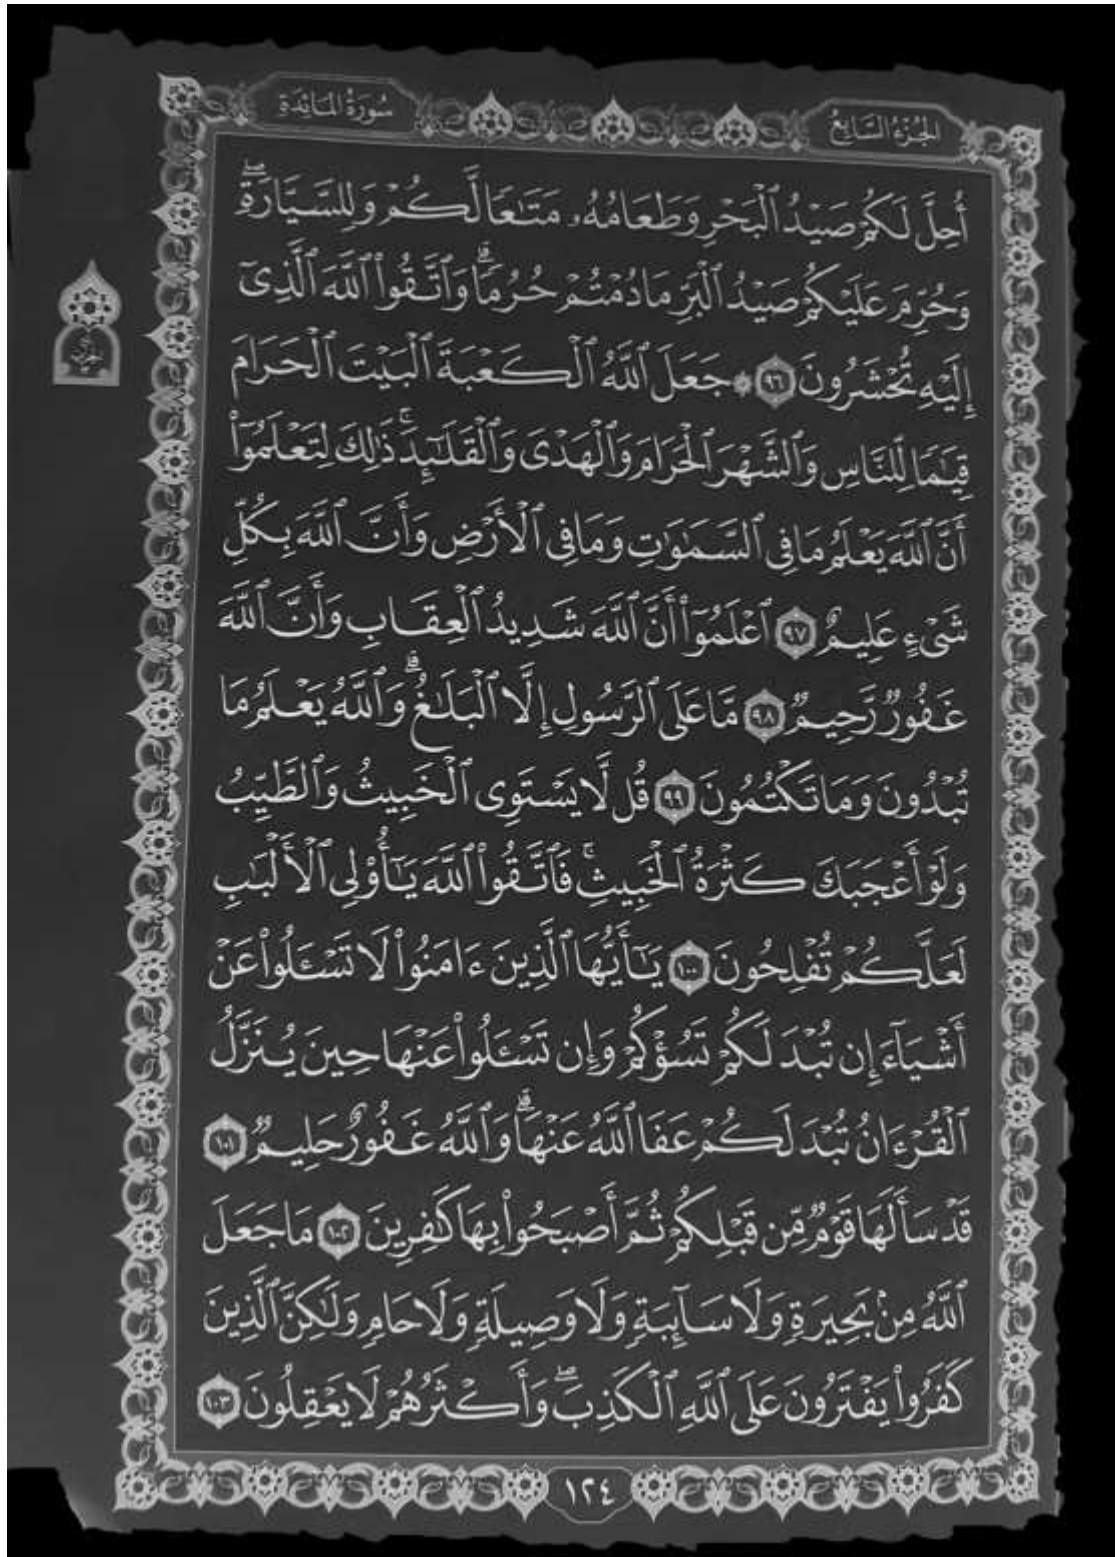 الجزء السابع
سورة المائدة
أُحِلَّ لَكُمْ صَيْدُ ٱلْبَحْرِ وَطَعَامُهُۥ مَتَٰعًا لَّكُمْ وَلِلسَّيَّارَةِۖ
وَحُرِّمَ عَلَيْكُمْ صَيْدُ ٱلْبَرِّ مَا دُمْتُمْ حُرُمًاۗ وَٱتَّقُوا۟ ٱللَّهَ ٱلَّذِىٓ
إِلَيْهِ تُحْشَرُونَ ٩٦ ۞ جَعَلَ ٱللَّهُ ٱلْكَعْبَةَ ٱلْبَيْتَ ٱلْحَرَامَ
قِيَٰمًا لِّلنَّاسِ وَٱلشَّهْرَ ٱلْحَرَامَ وَٱلْهَدْىَ وَٱلْقَلَٰٓئِدَۚ ذَٰلِكَ لِتَعْلَمُوٓا۟
أَنَّ ٱللَّهَ يَعْلَمُ مَا فِى ٱلسَّمَٰوَٰتِ وَمَا فِى ٱلْأَرْضِ وَأَنَّ ٱللَّهَ بِكُلِّ
شَىْءٍ عَلِيمٌ ٩٧ ٱعْلَمُوٓا۟ أَنَّ ٱللَّهَ شَدِيدُ ٱلْعِقَابِ وَأَنَّ ٱللَّهَ
غَفُورٌ رَّحِيمٌ ٩٨ مَّا عَلَى ٱلرَّسُولِ إِلَّا ٱلْبَلَٰغُۗ وَٱللَّهُ يَعْلَمُ مَا
تُبْدُونَ وَمَا تَكْتُمُونَ ٩٩ قُل لَّا يَسْتَوِى ٱلْخَبِيثُ وَٱلطَّيِّبُ
وَلَوْ أَعْجَبَكَ كَثْرَةُ ٱلْخَبِيثِۚ فَٱتَّقُوا۟ ٱللَّهَ يَٰٓأُو۟لِى ٱلْأَلْبَٰبِ
لَعَلَّكُمْ تُفْلِحُونَ ١٠٠ يَٰٓأَيُّهَا ٱلَّذِينَ ءَامَنُوا۟ لَا تَسْـَٔلُوا۟ عَنْ
أَشْيَآءَ إِن تُبْدَ لَكُمْ تَسُؤْكُمْ وَإِن تَسْـَٔلُوا۟ عَنْهَا حِينَ يُنَزَّلُ
ٱلْقُرْءَانُ تُبْدَ لَكُمْ عَفَا ٱللَّهُ عَنْهَاۗ وَٱللَّهُ غَفُورٌ حَلِيمٌ ١٠١
قَدْ سَأَلَهَا قَوْمٌ مِّن قَبْلِكُمْ ثُمَّ أَصْبَحُوا۟ بِهَا كَٰفِرِينَ ١٠٢ مَا جَعَلَ
ٱللَّهُ مِنۢ بَحِيرَةٍ وَلَا سَآئِبَةٍ وَلَا وَصِيلَةٍ وَلَا حَامٍ وَلَٰكِنَّ ٱلَّذِينَ
كَفَرُوا۟ يَفْتَرُونَ عَلَى ٱللَّهِ ٱلْكَذِبَۖ وَأَكْثَرُهُمْ لَا يَعْقِلُونَ ١٠٣
١٢٤